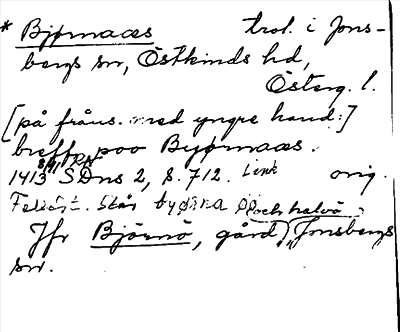 * Bjørnaæs trol. i Jons-
bergs sn, Östkinds hd,
Österg. l.
[på fråns. med yngre hand:]
breff poo Byørnaæs.
1413 8/11 RA SDns 2, s. 712. Link orig.
Står byørna och halvö
Jfr Björnö, gård, Jonsbergs
sn.